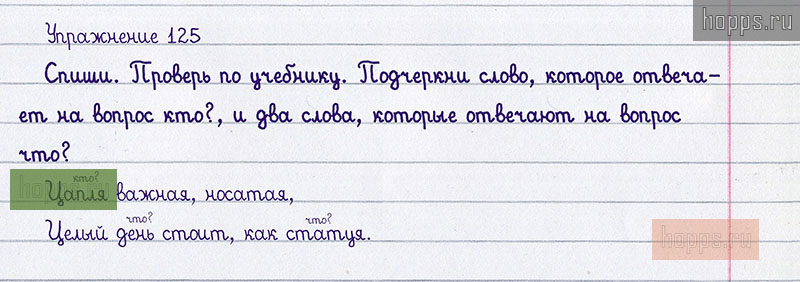 hopps.ru
Упражнение 125
Спиши. Проверь по учебнику. Подчеркни слово, которое отвеча-
ет на вопрос кто?, и два слова, которые отвечают на вопрос
что?
кто?
Цапля важная, носатая,
что? что?
Целый день стоит, как статуя.
hopps.ru